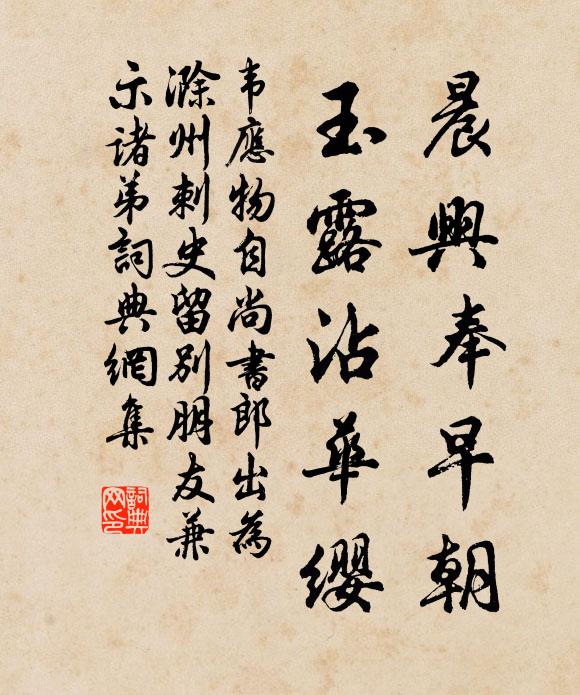 晨興奉早朝
玉露沾華纓
韦應物自尚書郎出為
滁州刺史留别朋友兼
示诸弟詞典網集
詞典网印